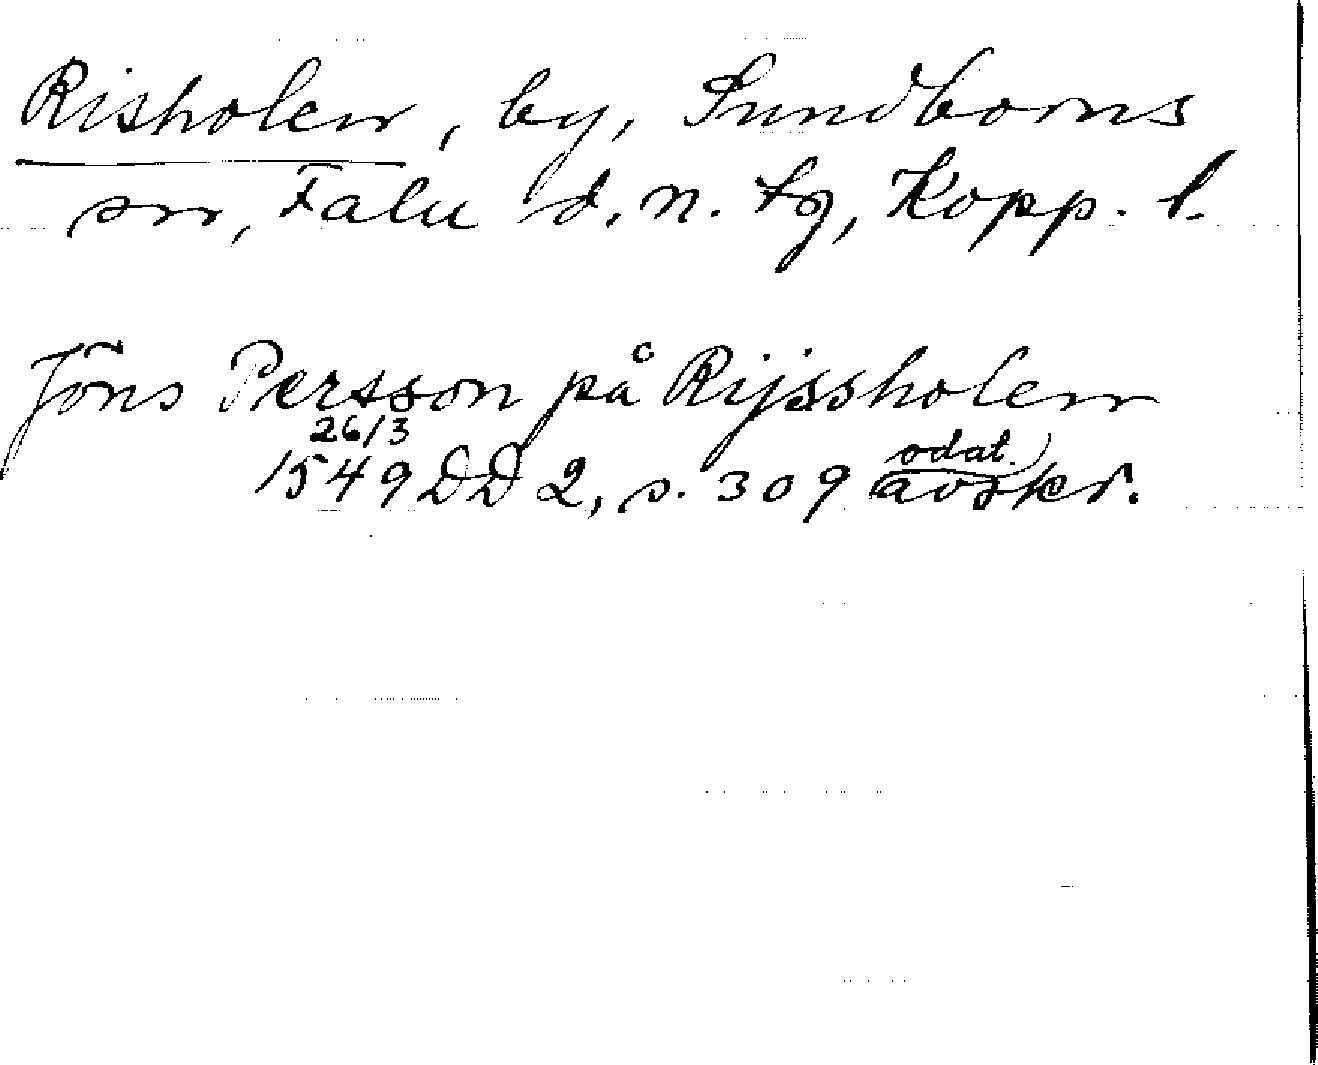 Risholen, by, Sundborns
sn, Falu d. n. tg, Kopp. l.
Jöns Persson på Rijssholen
26/3
1549 DD 2, s. 309 odat. avskr.